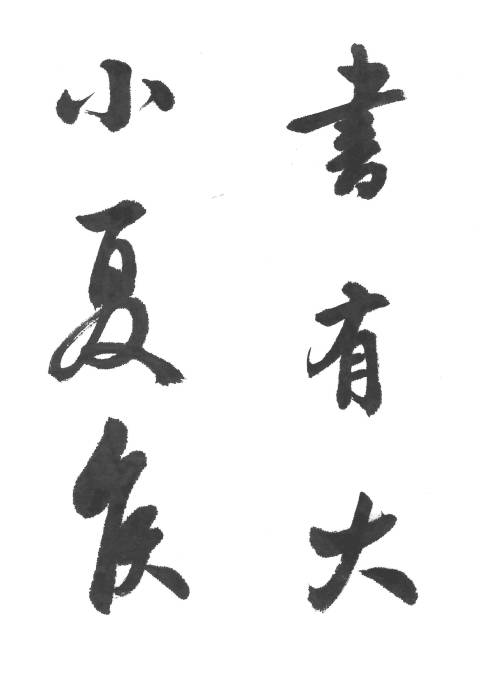 書有大
小夏侯